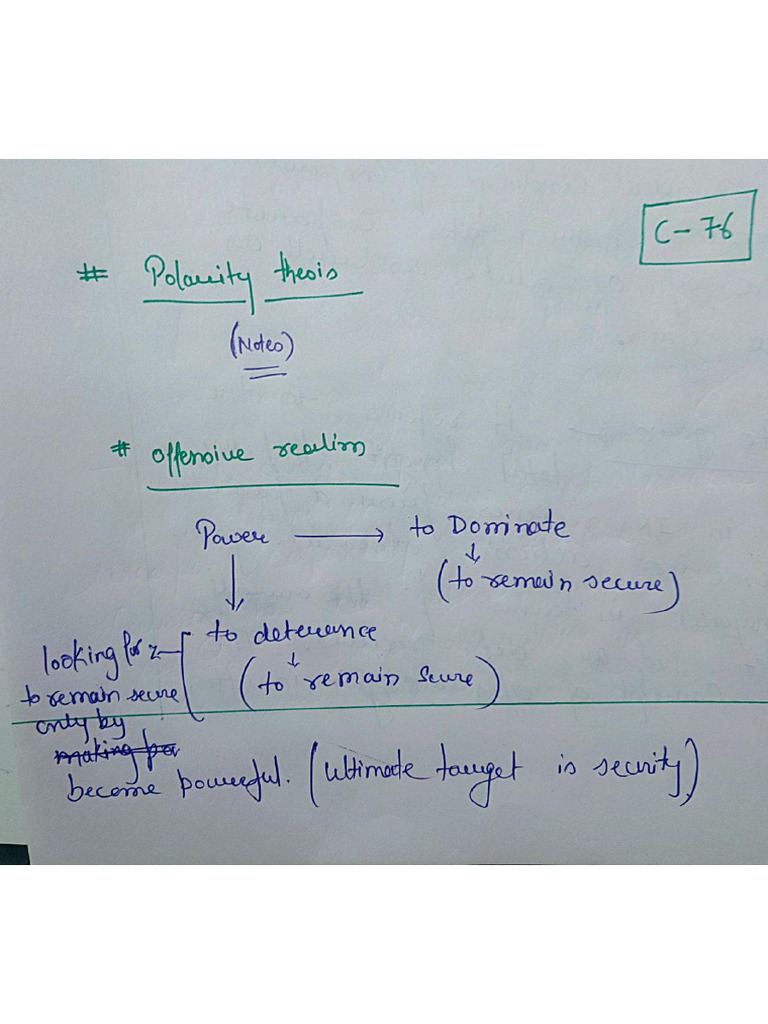 C-76
# Polarity thesis
(Notes)
# offensive realism
Power → to Dominate
↓
(to remain secure)
↓
to deterrence
↓
(to remain Scure)
looking for
to remain secure
only by
making
become powerful. (Ultimate target is security)